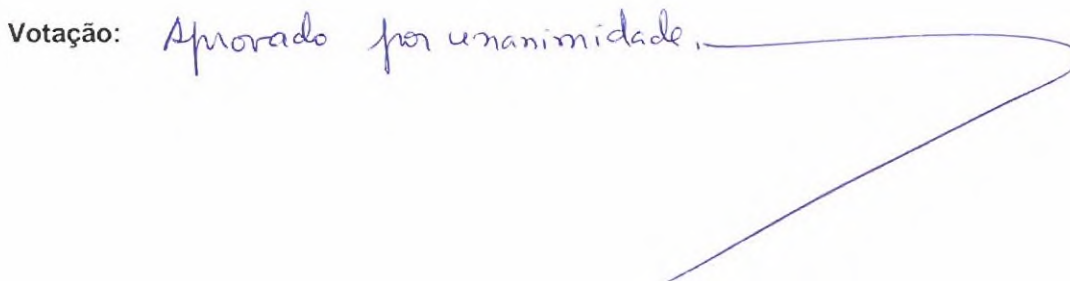 Votação: Aprovado por unanimidade.